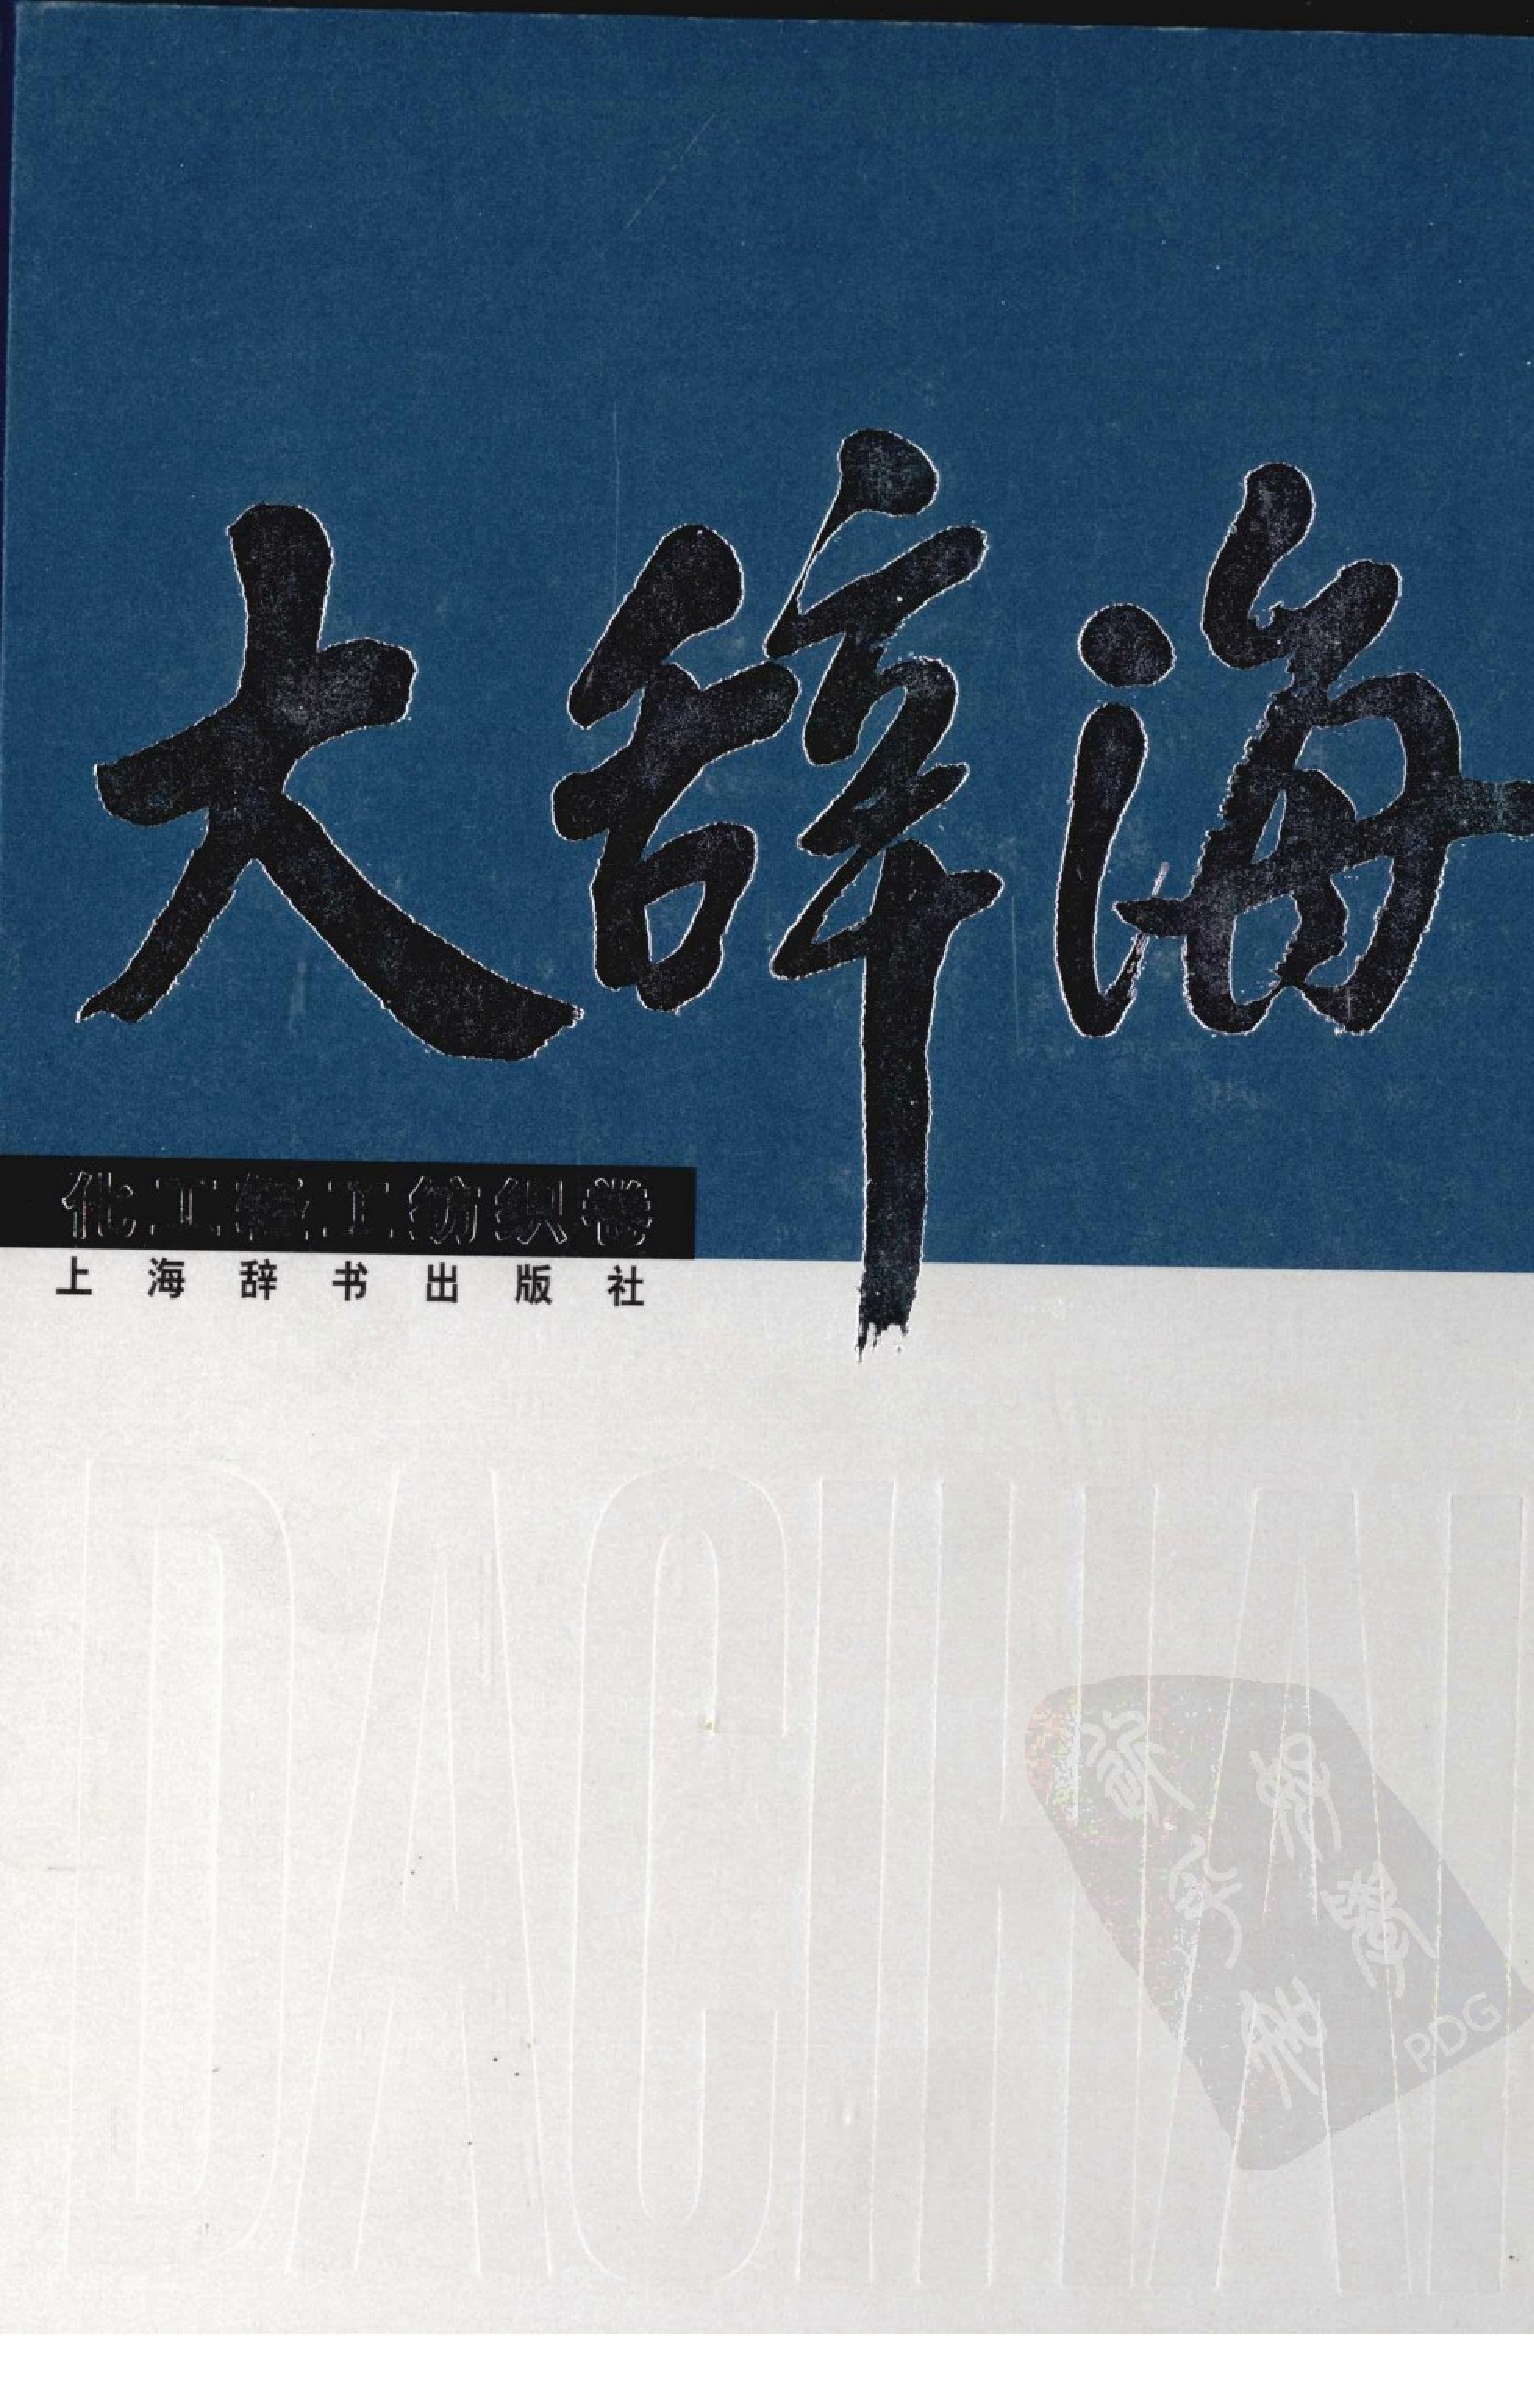 大辞海
化工轻工纺织卷
上海辞书出版社
DACIHAI
PDG